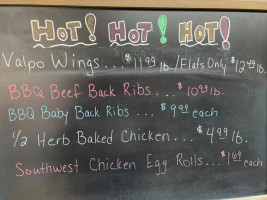 HOT! HOT! HOT!
Valpo Wings... $11.99 lb. /Flats Only $12.49 lb.
BBQ Beef Back Ribs... $10.99 lb.
BBQ Baby Back Ribs... $9.99 each
1/2 Herb Baked Chicken... $4.99 lb.
Southwest Chicken Egg Rolls...$1.69 each